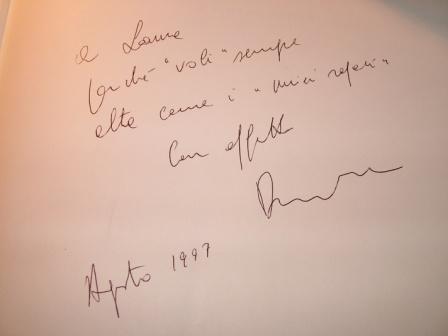 a Laura
perché "voli" sempre
alta come i "miei
Con affetto
Agosto 1997